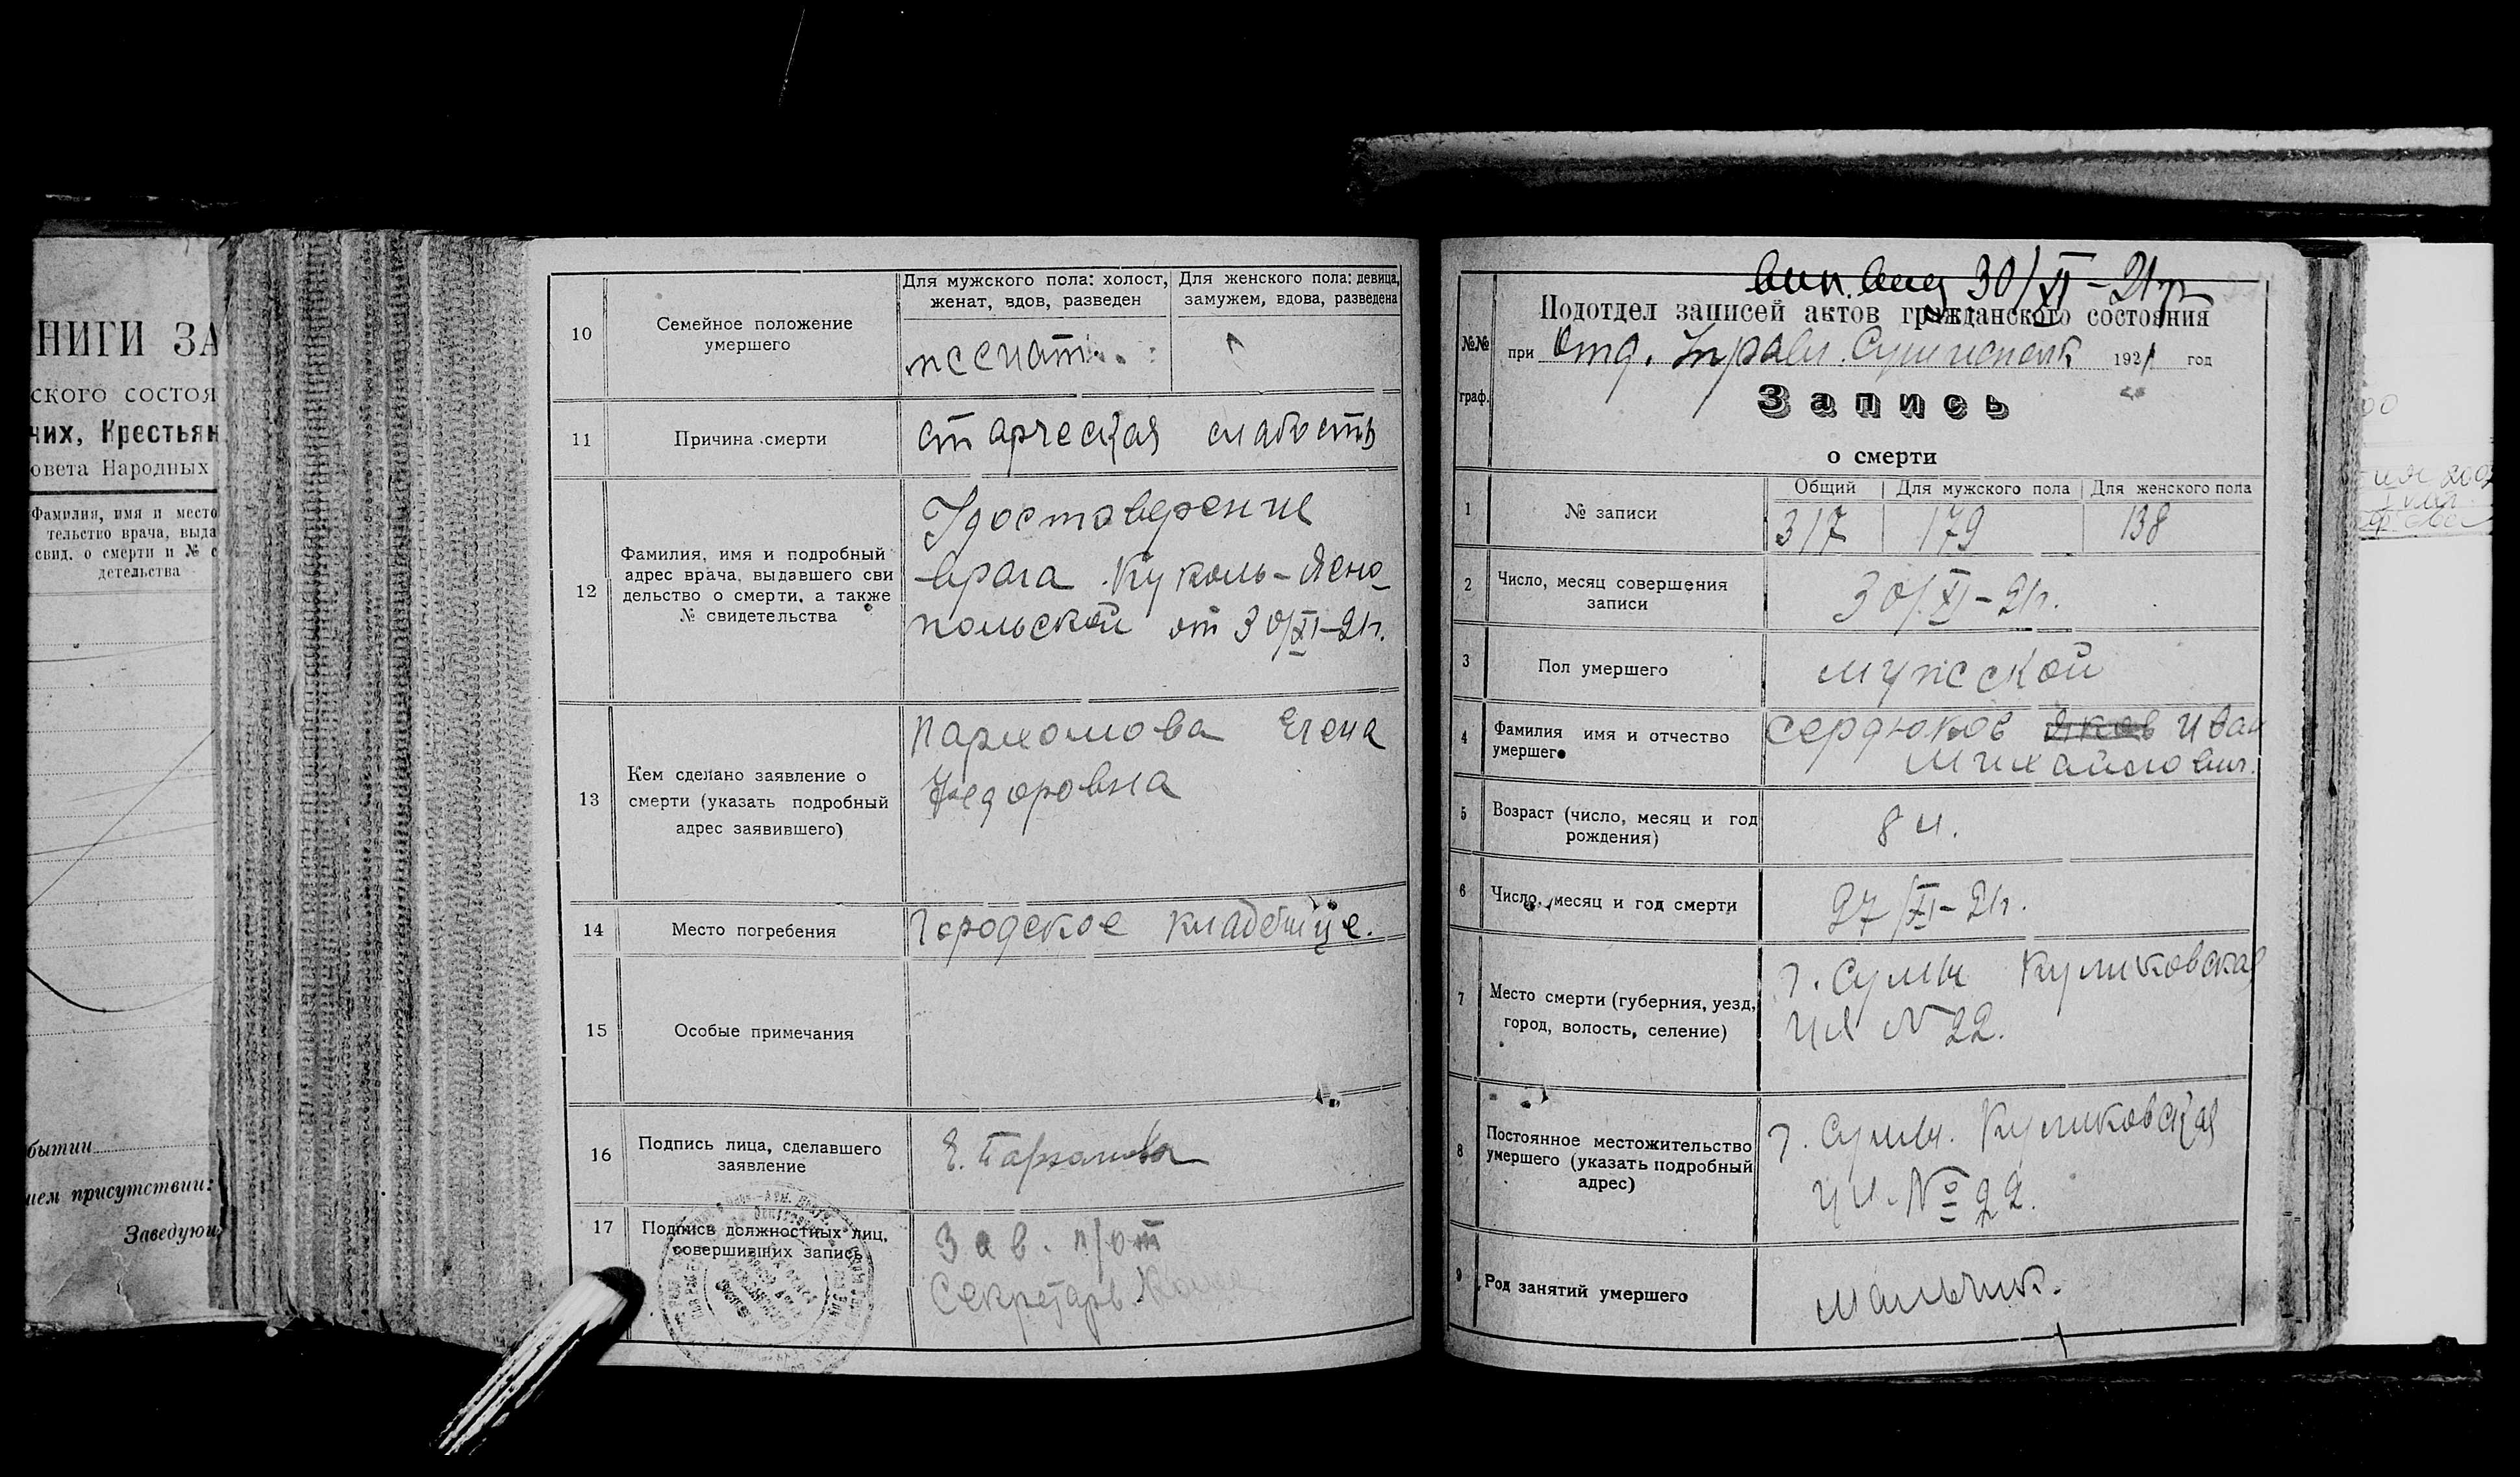 НИГИ ЗА
ского состоя
чих, Крестьян
овета Народных
Фамилия, имя и место
тельство врача, выда
свид. о смерти и № с
детельства
бытии
ием присутствии:
Заведую
10
Семейное положение
умершего
Для мужского пола: холост,
женат, вдов, разведен
Для женского пола: девица,
замужем, вдова, разведена
женат
11
Причина смерти
старческая слабость
12
Фамилия, имя и подробный
адрес врача, выдавшего сви
дельство о смерти, а также
№ свидетельства
Удостоверение
врача Куколь-Ясно
польской от 30/XI-21г.
13
Кем сделано заявление о
смерти (указать подробный
адрес заявившего)
Пархомова Елена
Федоровна
14
Место погребения
Городское кладбище.
15
Особые примечания
16
Подпись лица, сделавшего
заявление
Е. Пархомова
17
Подпись должностных лиц,
совершивших запись
Зав. п/от
Секретарь
30/XI-21г
№№
граф.
Подотдел записей актов гражданского состояния
при Отд. Управл. 1921 год
Запись
о смерти
1
№ записи
Общий
Для мужского пола
Для женского пола
317
179
138
2
Число, месяц совершения
записи
30/XI-21г.
3
Пол умершего
мужской
4
Фамилия имя и отчество
умершего
Сердюков Яков Иван
Михайлович.
5
Возраст (число, месяц и год
рождения)
8 л.
6
Число, месяц и год смерти
27/XI-21г.
7
Место смерти (губерния, уезд,
город, волость, селение)
г. Сумы Куликовская
ул №22.
8
Постоянное местожительство
умершего (указать подробный
адрес)
г. Сумы. Куликовская
ул. № 22.
9
Род занятий умершего
мальчик.